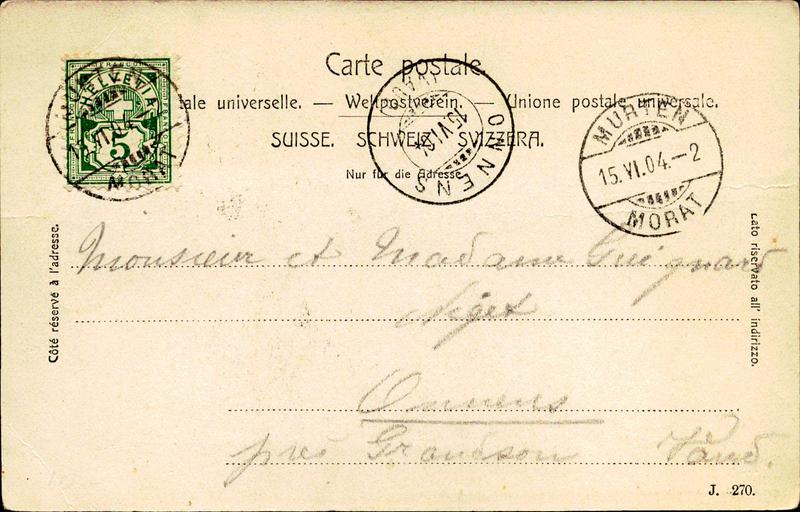 Carte postale.
tale universelle. — Weltpostverein. — Unione postale universale.
SUISSE. SCHWEIZ. SVIZZERA.
Nur für die Adresse
HELVETIA
5
MURTEN
15.VI.04
MORAT
ONNENS
(VAUD)
15.VI.04
MURTEN
15.VI.04.–2
MORAT
Côté réservé à l'adresse.
Lato riservato all' indirizzo.
Monsieur et Madame Guignard
Onnens
près Grandson Vaud.
J. 270.